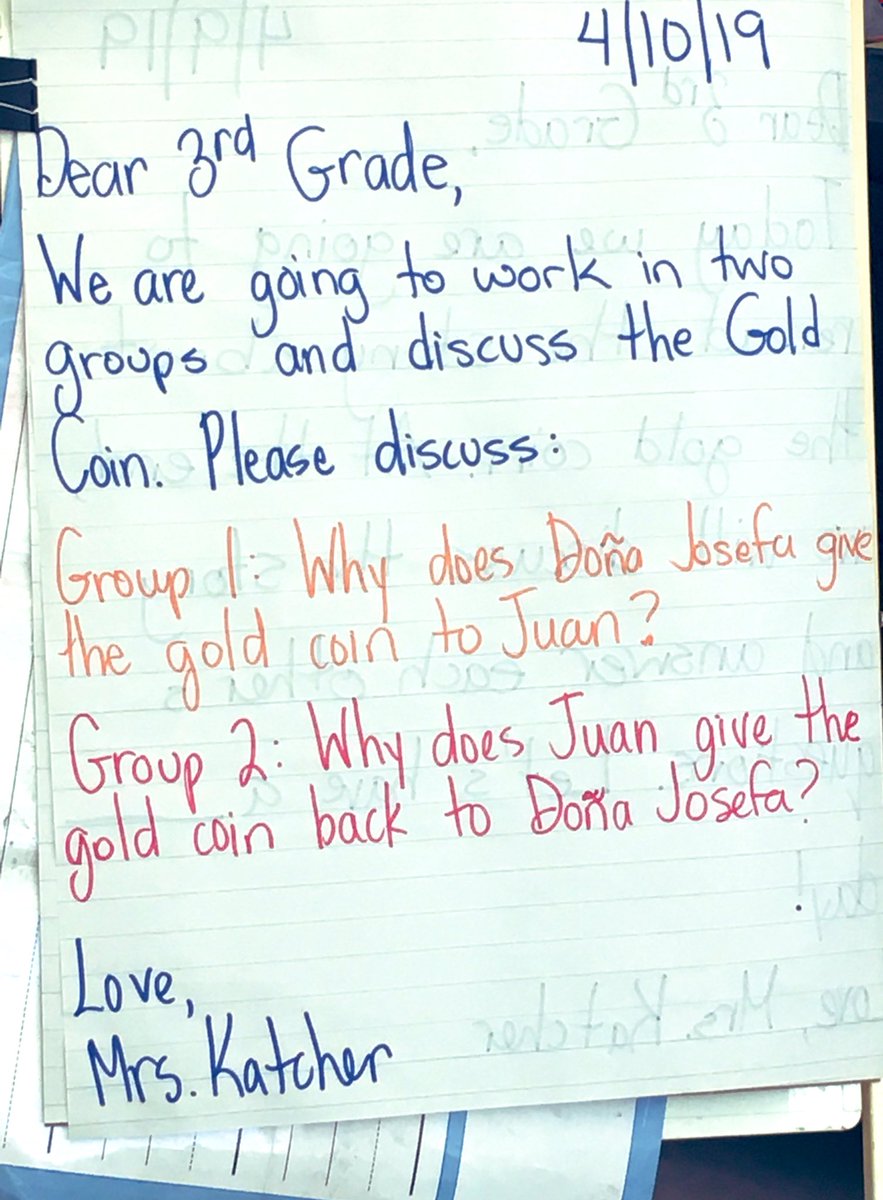 4/10/19
Dear 3rd Grade,
We are going to work in two
groups and discuss the Gold
Coin. Please discuss:
Group 1: Why does Doña Josefa give
the gold coin to Juan?
Group 2: Why does Juan give the
gold coin back to Doña Josefa?
Love,
Mrs. Katcher